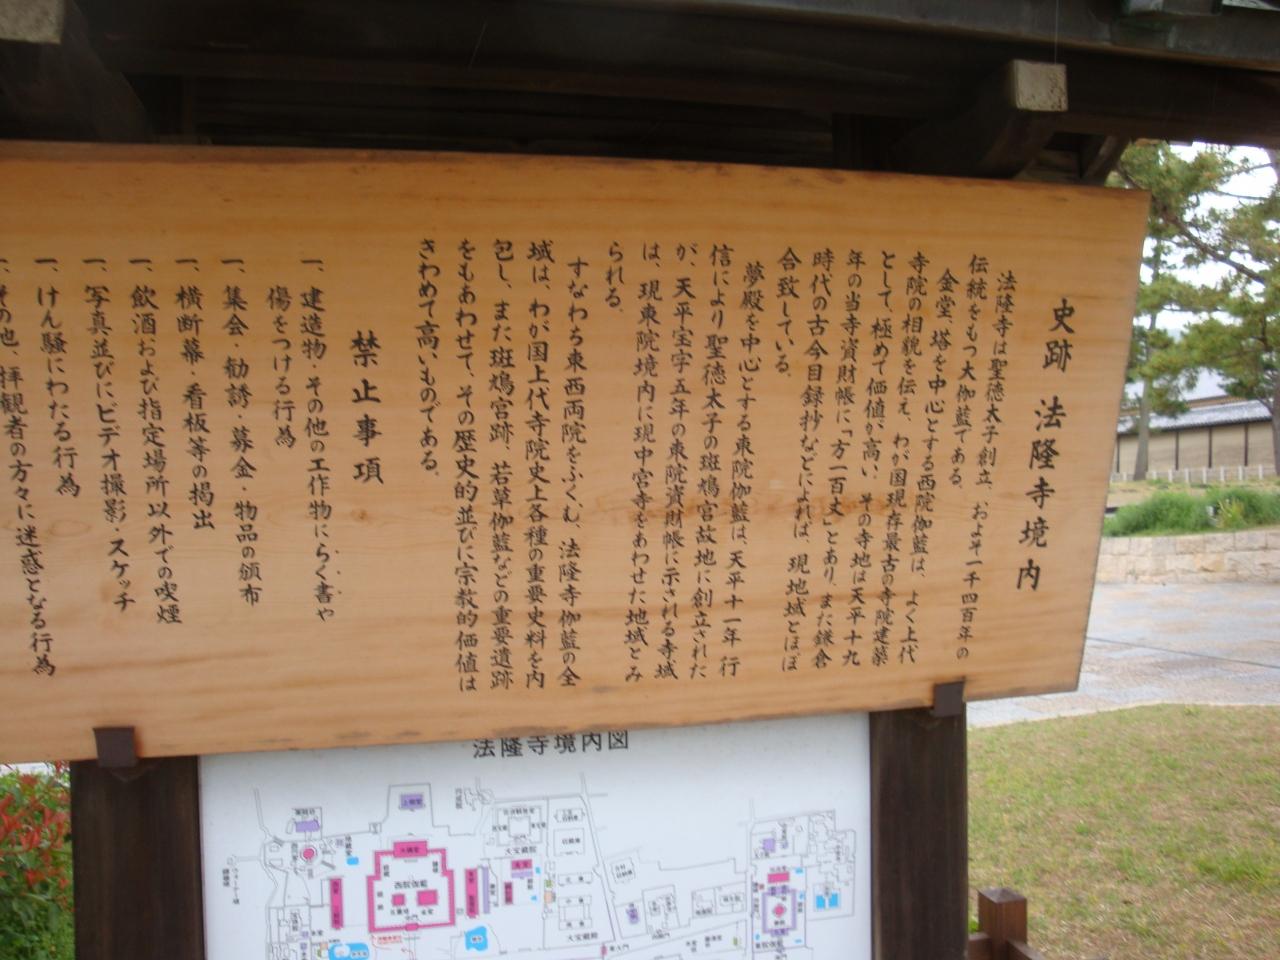 史跡 法隆寺境内
法隆寺は聖徳太子創立、およそ一千四百年の
伝統をもつ大伽藍である。
金堂、塔を中心とする西院伽藍は、よく上代
寺院の相貌を伝え、わが国現存最古の寺院建築
として、極めて価値が高い、その寺地は天平十九
年の当寺資財帳に「方一百丈」とあり、また鎌倉
時代の古今目録抄などによれば、現地域とほぼ
合致している。
夢殿を中心とする東院伽藍は、天平十一年行
信により聖徳太子の斑鳩宮故地に創立された
が、天平宝字五年の東院資財帳に示される寺域
は、現東院境内に現中宮寺をあわせた地域とみ
られる。
すなわち東西両院をふくむ、法隆寺伽藍の全
域は、わが国上代寺院史上各種の重要史料を内
包し、また斑鳩宮跡、若草伽藍などの重要遺跡
をもあわせて、その歴史的並びに宗教的価値は
きわめて高いものである。
禁止事項
一、建造物・その他の工作物にらく書や
傷をつける行為
一、集会・勧誘・募金・物品の頒布
一、横断幕・看板等の掲出
一、飲酒および指定場所以外での喫煙
一、写真並びにビデオ撮影、スケッチ
一、けん騒にわたる行為
一、その他、拝観者の方々に迷惑となる行為
法隆寺境内図
西院伽藍
大宝蔵院